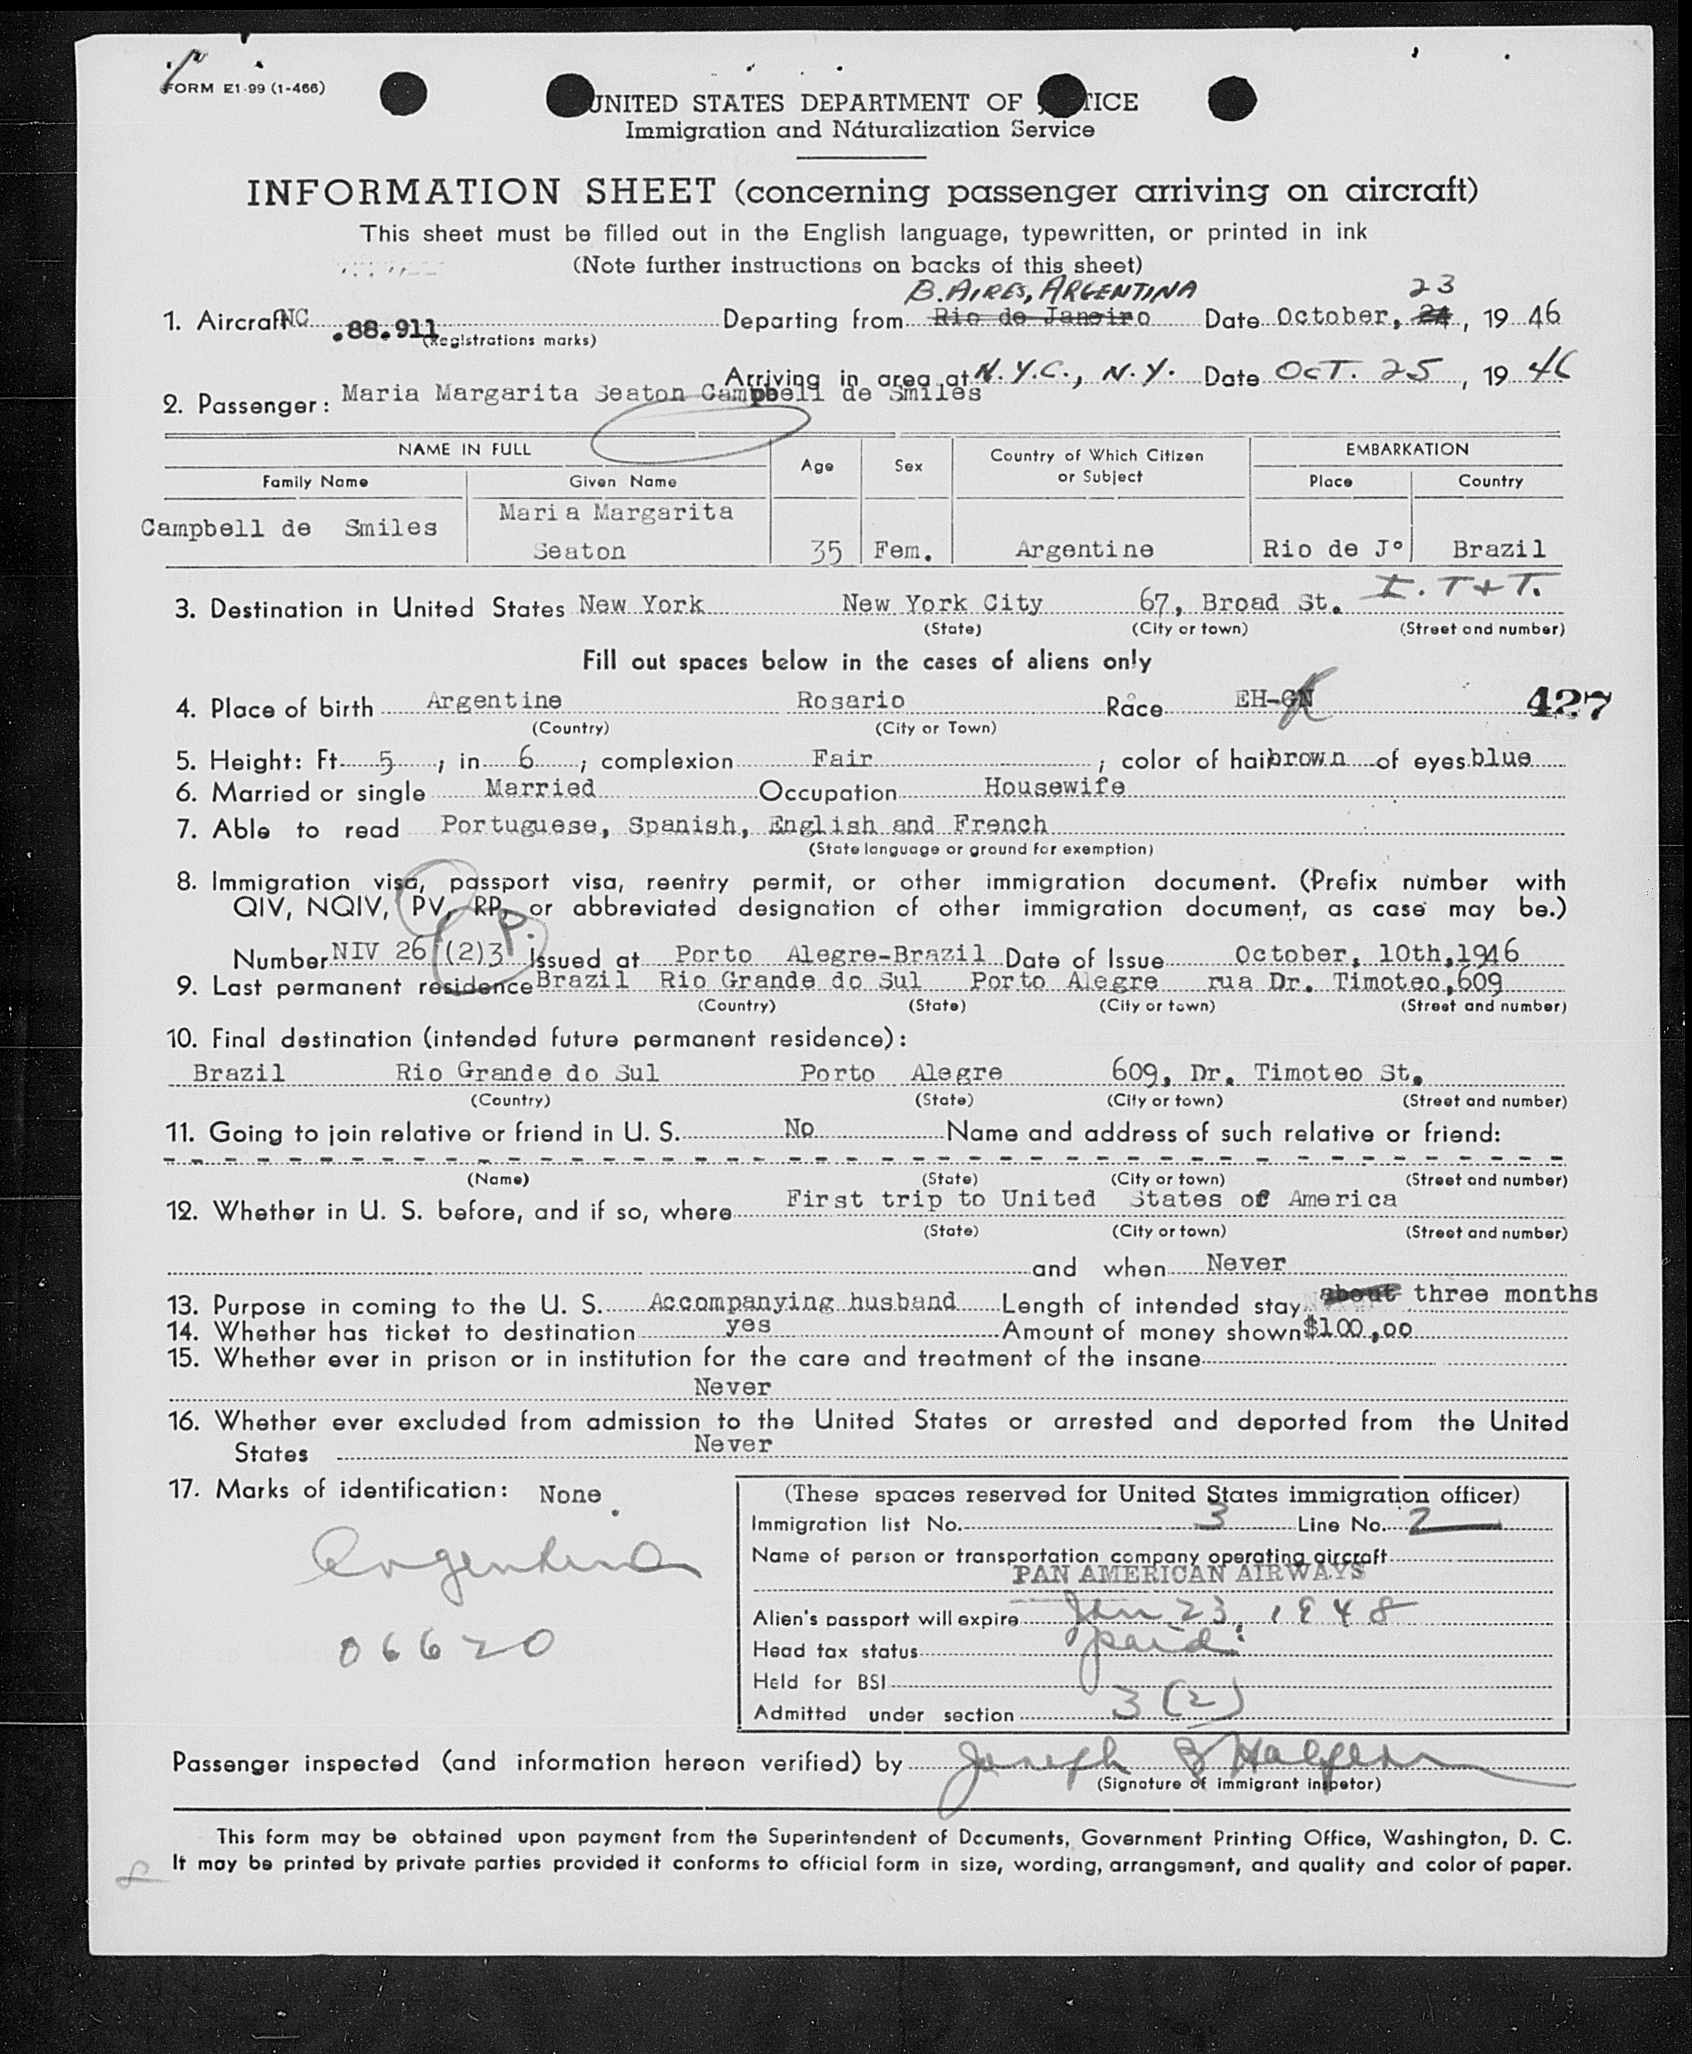 FORM E1-99 (1-466)
UNITED STATES DEPARTMENT OF TICE
Immigration and Naturalization Service
INFORMATION SHEET (concerning passenger arriving on aircraft)
This sheet must be filled out in the English language, typewritten, or printed in ink
(Note further instructions on backs of this sheet)
B. AIRES, ARGENTINA 23
1. Aircraft NC .88.911 Departing from Rio de Janeiro Date October, 24, 19 46
(Registrations marks)
Arriving in area at N.Y.C., N.Y. Date OCT. 25, 19 46
2. Passenger: Maria Margarita Seaton Campbell de Smiles
NAME IN FULL Age Sex Country of Which Citizen or Subject EMBARKATION
Family Name Given Name Place Country
Campbell de Smiles Maria Margarita Seaton 35 Fem. Argentine Rio de Jº Brazil
I. T & T.
3. Destination in United States New York New York City 67, Broad St.
(State) (City or town) (Street and number)
Fill out spaces below in the cases of aliens only
4. Place of birth Argentine Rosario Race EH-GN 427
(Country) (City or Town)
5. Height: Ft. 5, in 6; complexion Fair; color of hair brown of eyes blue
6. Married or single Married Occupation Housewife
7. Able to read Portuguese, Spanish, English and French
(State language or ground for exemption)
8. Immigration visa, passport visa, reentry permit, or other immigration document. (Prefix number with
QIV, NQIV, PV, RP, or abbreviated designation of other immigration document, as case may be.)
P.
Number NIV 26 (2)3 issued at Porto Alegre-Brazil Date of Issue October, 10th,1946
9. Last permanent residence Brazil Rio Grande do Sul Porto Alegre rua Dr. Timoteo,609
(Country) (State) (City or town) (Street and number)
10. Final destination (intended future permanent residence):
Brazil Rio Grande do Sul Porto Alegre 609, Dr. Timoteo St.
(Country) (State) (City or town) (Street and number)
11. Going to join relative or friend in U. S. No Name and address of such relative or friend:
(Name) (State) (City or town) (Street and number)
12. Whether in U. S. before, and if so, where First trip to United States of America
(State) (City or town) (Street and number)
and when Never
13. Purpose in coming to the U. S. Accompanying husband Length of intended stay about three months
14. Whether has ticket to destination yes Amount of money shown $100,00
15. Whether ever in prison or in institution for the care and treatment of the insane
Never
16. Whether ever excluded from admission to the United States or arrested and deported from the United
States Never
17. Marks of identification: None.
Argentina
06620
(These spaces reserved for United States immigration officer)
Immigration list No. 3 Line No. 2
Name of person or transportation company operating aircraft
PAN AMERICAN AIRWAYS
Alien's passport will expire Jan 23, 1948
Head tax status paid
Held for BSI
Admitted under section 3(2)
Passenger inspected (and information hereon verified) by Joseph B Halpern
(Signature of immigrant inspetor)
This form may be obtained upon payment from the Superintendent of Documents, Government Printing Office, Washington, D. C.
It may be printed by private parties provided it conforms to official form in size, wording, arrangement, and quality and color of paper.